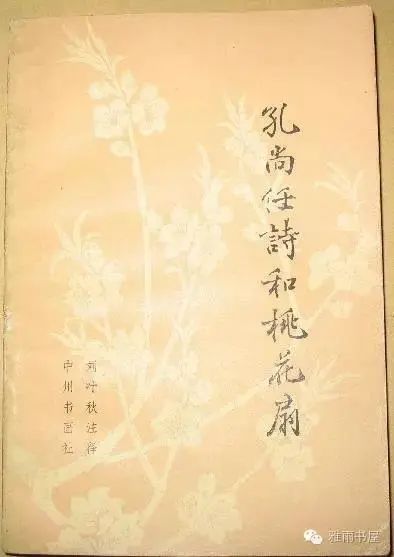 孔尚任詩和桃花扇
刘叶秋注释
中州书画社
雅雨书屋